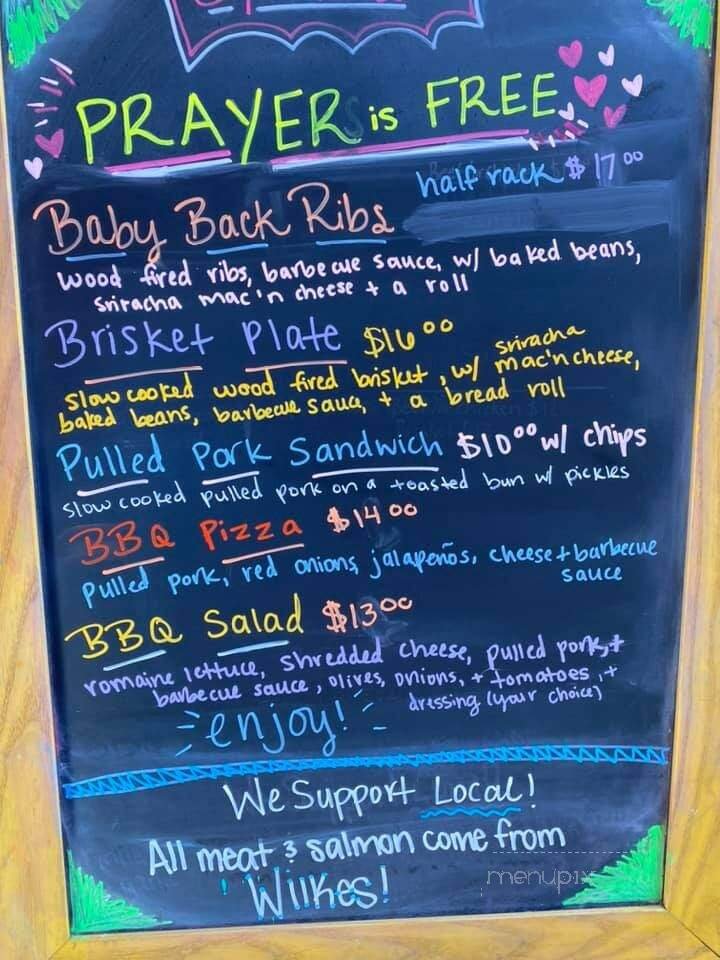 PRAYER is FREE
half rack $17.00
Baby Back Ribs
wood fired ribs, barbecue sauce, w/ baked beans,
sriracha mac'n cheese + a roll
Brisket Plate $16.00
slow cooked wood fired brisket, w/ sriracha mac'n cheese,
baked beans, barbecue sauce, + a bread roll
Pulled Pork Sandwich $10.00 w/ chips
slow cooked pulled pork on a toasted bun w/ pickles
BBQ Pizza $14.00
pulled pork, red onions, jalapeños, cheese + barbecue
sauce
BBQ Salad $13.00
romaine lettuce, shredded cheese, pulled pork, +
barbecue sauce, olives, onions, + tomatoes, +
dressing (your choice)
enjoy!
We Support Local!
All meat & salmon come from
Wilkes!
menupix